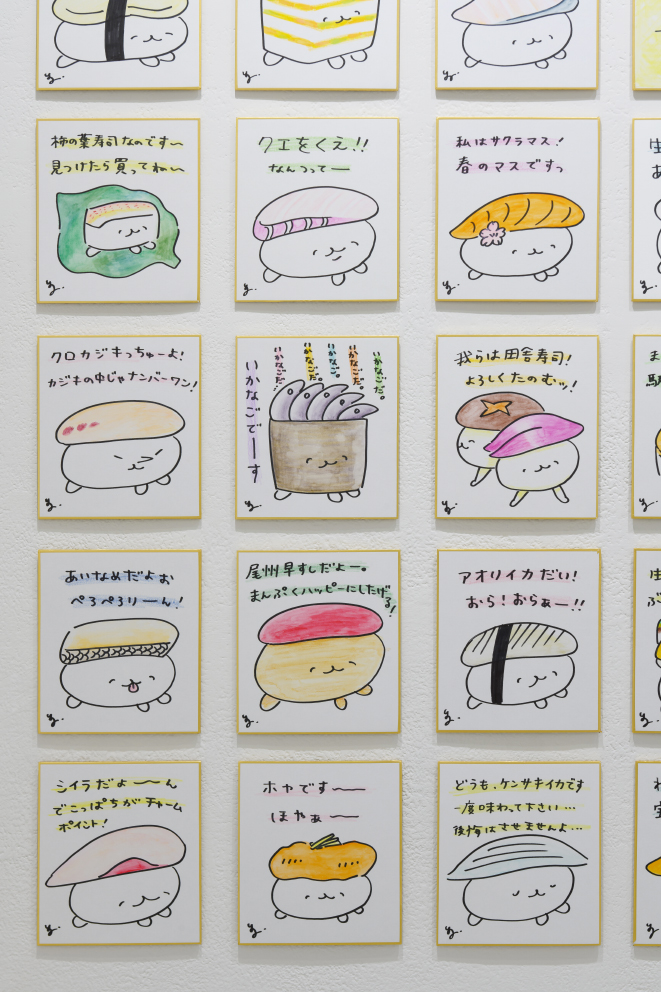 柿の葉寿司なのです〜
見つけたら買ってね〜
クエをくえ!!
なんつってー
私はサクラマス!
春のマスですっ
クロカジキっちゅーよ!
カジキの中じゃナンバーワン!
いかなごでーす
いかなごだ。
いかなごだ。
いかなごだ。
いかなごだ。
いかなごだ。
我らは田舎寿司!
よろしくたのむッ!
あいなめだよぉ
ぺろぺろりーん!
尾州早すしだよー。
まんぷくハッピーにしたげる!
アオリイカだい!
おら!おらぁー!!
シイラだよ〜〜ん
でこっぱちがチャーム
ポイント!
ホヤです〜〜
ほやぁ〜
どうも、ケンサキイカです
一度味わって下さい…
後悔はさせませんよ…